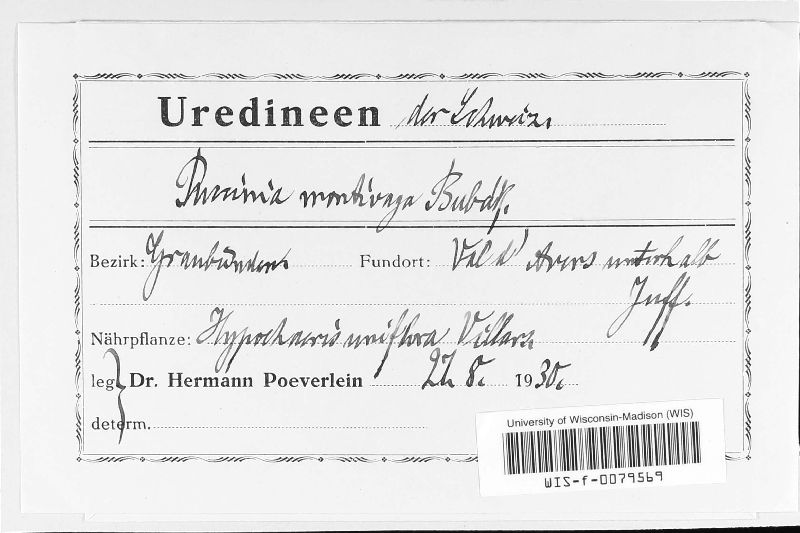 Uredineen der Schweiz.
Puccinia montivaga Bubák.
Bezirk: Graubünden Fundort: Val d'Avers unterhalb
Juff.
Nährpflanze: Hypochaeris uniflora Villars
leg. Dr. Hermann Poeverlein 22. 8. 1930.
determ.
University of Wisconsin-Madison (WIS)
WIS-f-0079569